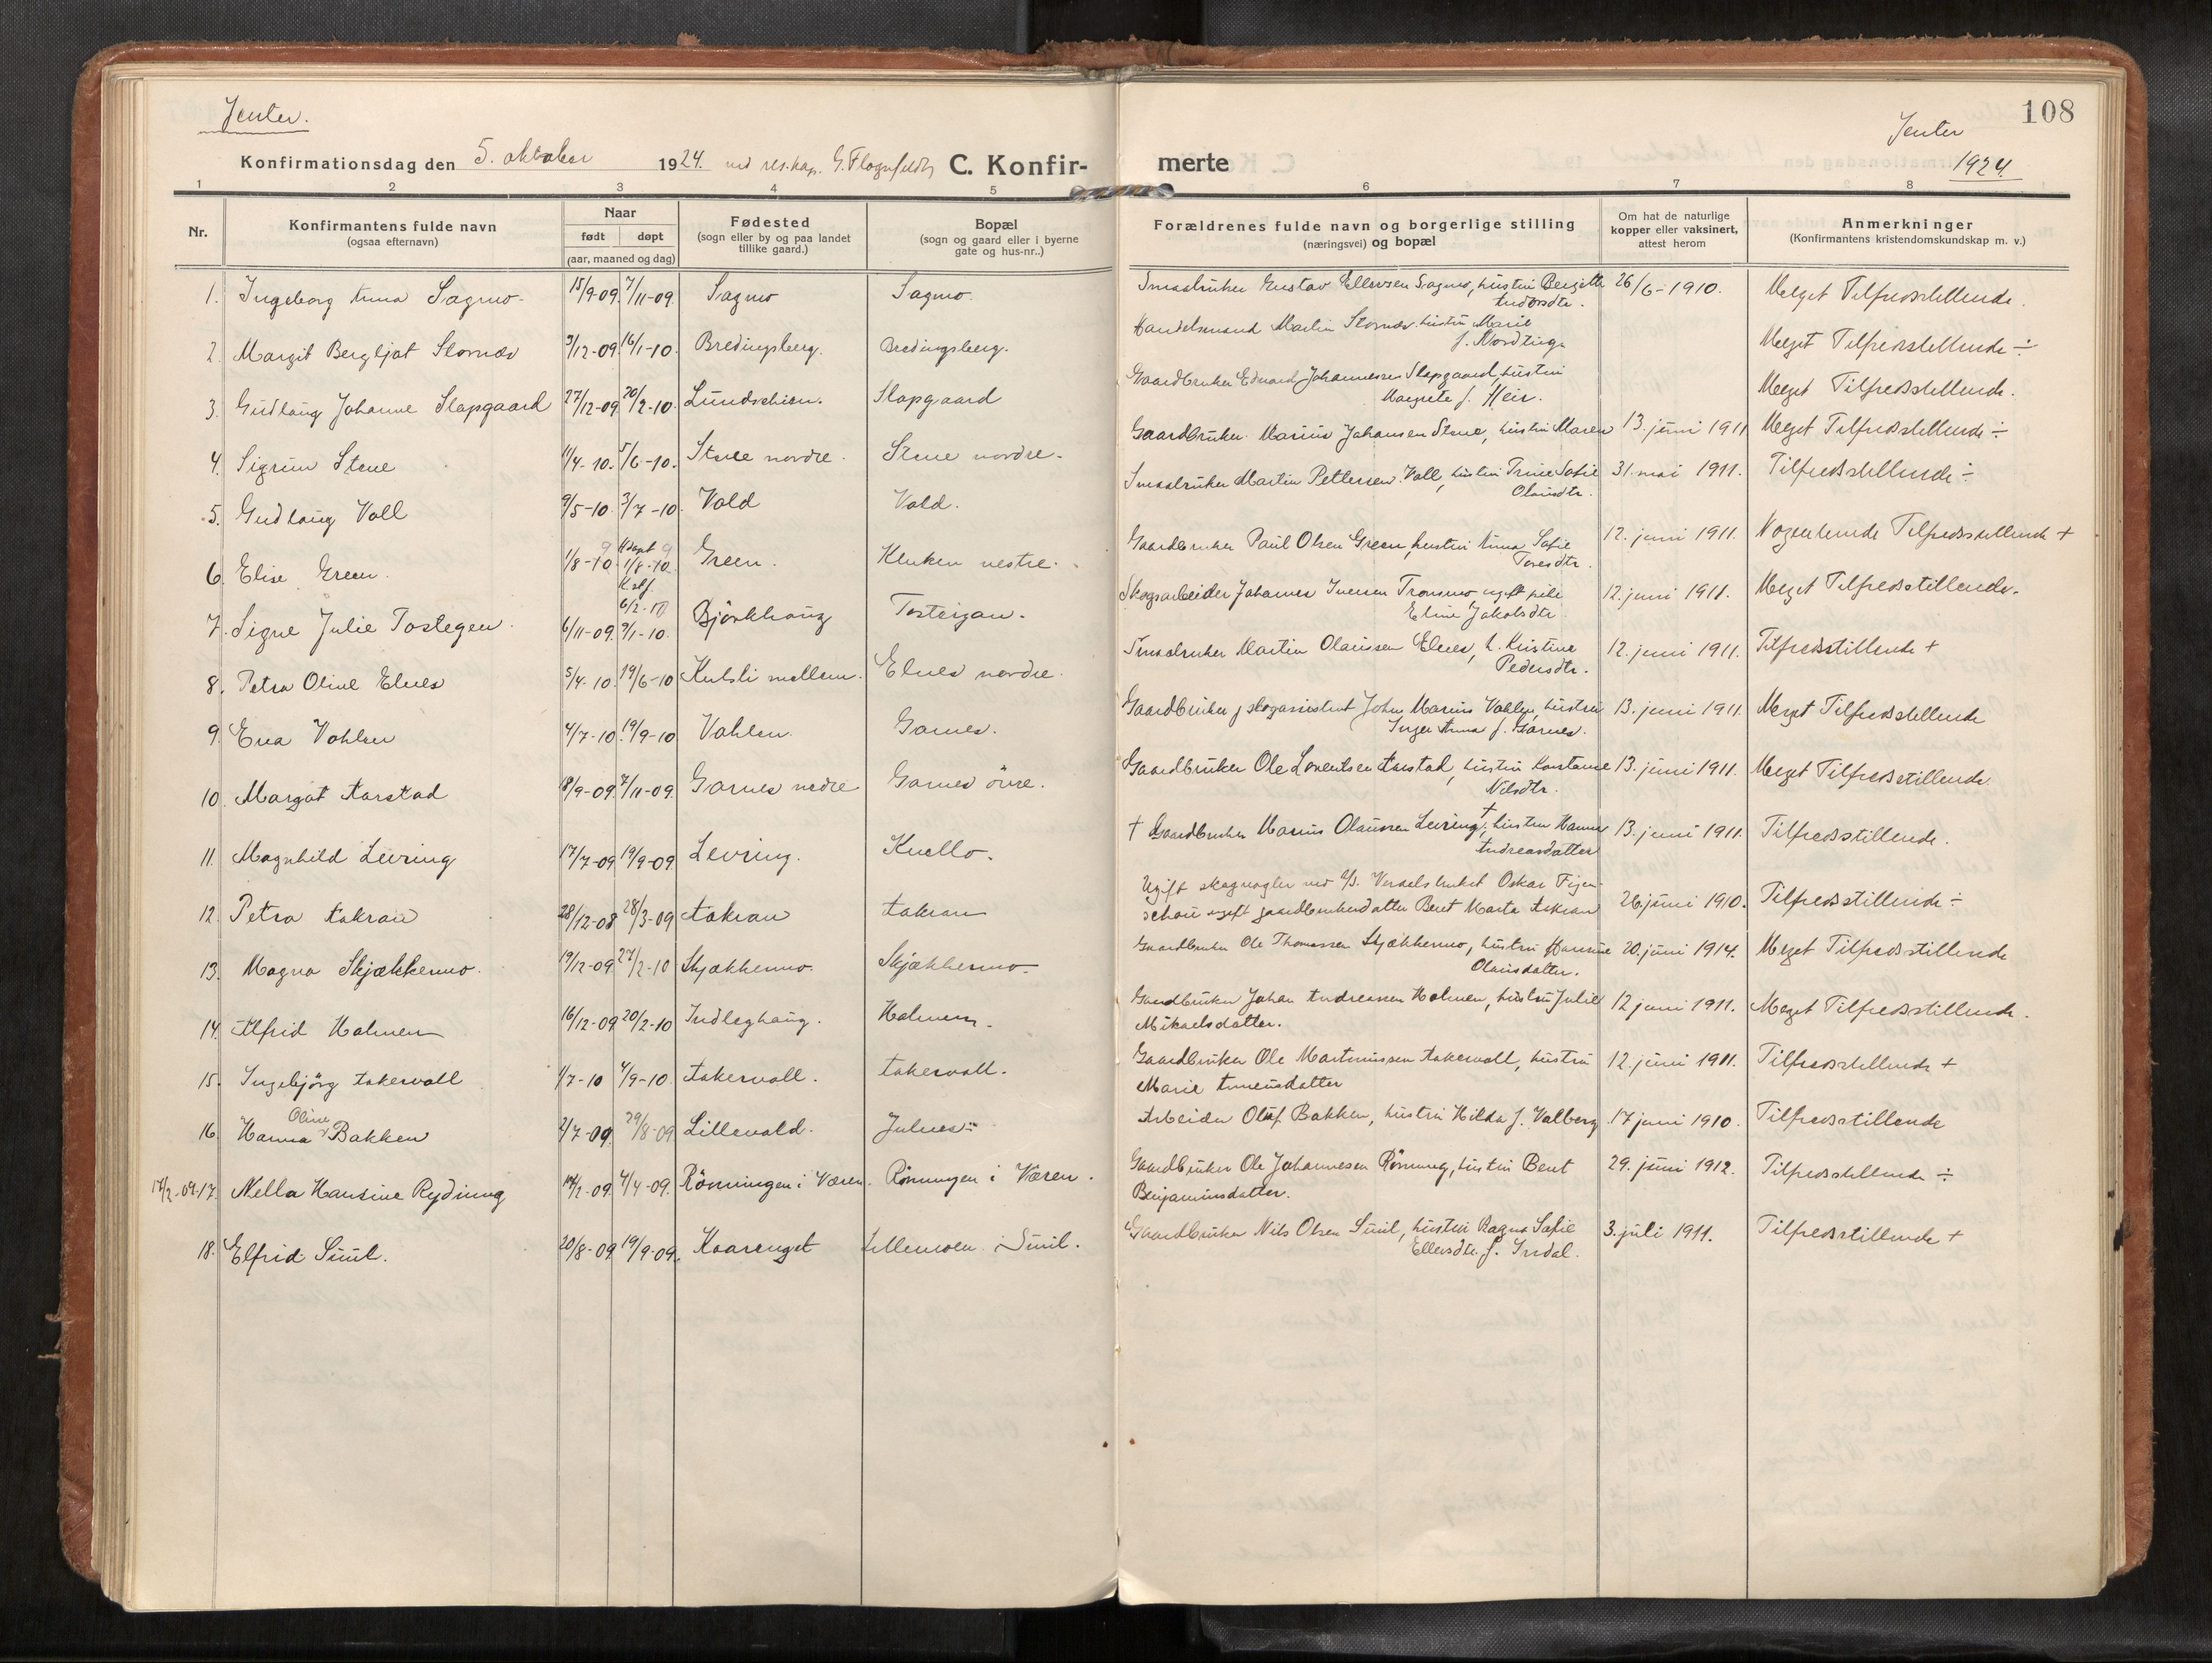 Jenter.
Konfirmationsdag den 5. oktober 1924. ved res.kap. G. C. Konfir-
1 2 3 4 5
Nr.
Konfirmantens fulde navn
(ogsaa efternavn)
Naar
født døpt
(aar, maaned og dag)
Fødested
(sogn eller by og paa landet
tillike gaard.)
Bopæl
(sogn og gaard eller i byerne
gate og hus-nr..)
1. Ingeborg Anna Sagmo. 15/9-09. 7/11-09. Sagmo Sagmo.
2. Margit Bergljot Stornæs 3/12-09. 16/1-10. Bredingsberg. Bredingsberg.
3. Gudlaug Johanne Slapgaard 27/12-09. 20/2-10. Slapgaard
4. Sigrun Stene 11/4-10. 5/6-10. Stene nordre. Stene nordre.
5. Gudlaug Voll 9/5-10. 3/7-10. Vold Vold.
9 9
6. Elise Green. 1/8-10 1/8-10 Green. Kluken vestre.
6/2-10
7. Signe Julie Tostegen. 6/11-09. 9/1-10. Bjørkhaug Tosteigan.
8. Petra Oline Elnes 5/4-10. 19/6-10 Kulsli mellem. Elnes nordre.
9. Eva Vohlen 4/7-10. 19/9-10 Vohlen. Garnes.
10. Margot Aarstad 18/9-09. 7/11-09. Garnes nedre Garnes övre.
11. Magnhild Levring 17/7-09 19/9-09 Levring. Knello.
12. Petra Aakran 28/12-08 28/3-09 Aakran Aakran
13. Magna Skjækkermo. 19/12-09. 27/2-10 Skjækkermo. Skjækkermo.
14. Alfrid Holmen 16/12-09 20/2-10 Indleghaug. Holmen.
15. Ingebjörg Aakervoll 1/7-10 4/9-10. Aakervoll. Aakervoll.
Oline
16. Hanna Bakken 2/7-09. 29/8-09. Lillevold. Julnes
14/2-09. 17. Nella Hansine Rydning 14/2-09. 4/4-09. Rönningen i Væren. Rönningen i Væren.
18. Elfrid Suul. 20/8-09 19/9-09. Kaarenget Lillemoen i Suul.
108
Jenter
1924.
merte
6 7 8
Forældrenes fulde navn og borgerlige stilling
(næringsvei) og bopæl
Om hat de naturlige
kopper eller vaksinert,
attest herom
Anmerkninger
(Konfirmantens kristendomskundskap m. v.)
Smaabruker Gustav Ellevsen Sagmo, hustru Bergitte 26/6-1910. Meget Tilfredsstillende.
Andersdtr.
Handelsmand Martin Stornæs. hustru Marie
f. Nordtug Meget Tilfredsstillende ÷
Gaardbruker Edvard Johannessen Slapgaard, hustru
Margrete f. Heir. Meget Tilfredsstillende.
Gaardbruker Marius Johansen Stene, hustru Maren 13. juni 1911 Meget Tilfredsstillende ÷
Smaabruker Martin Pettersen Voll, hustru Trine Sofie 31. mai 1911. Tilfredsstillende ÷
Olausdtr.
Gaardbruker Paul Olsen Green, hustru Anna Sofie 12. juni 1911. Nogenlunde Tilfredsstillende +
Toresdtr.
Skogsarbeider Johannes Iversen Tronsmo ugift pike 12. juni 1911. Meget Tilfredsstillende.
Eline Jakobsdtr.
Smaabruker Martin Olaussen Elnes, h. Kristine 12. juni 1911. Tilfredsstillende +
Pedersdtr.
Gaardbruker, skogassistent John Marius Vohlen, hustru 13. juni 1911. Meget Tilfredsstillende
Inger Anna f. Garnes.
Gaardbruker Ole Lorentsen Aarstad, hustru Konstance 13. juni 1911. Meget Tilfredsstillende.
Nilsdtr.
† Gaardbruker Marius Olaussen Levring †, hustru Hanna 13. juni 1911. Tilfredsstillende.
Andreasdatter
Ugift skogvogter ved A/S. Værdalsbruket Oskar Figen-
schou ugift gaardbrukerdatter Beret Marta Aakran 26. juni 1910. Tilfredsstillende ÷
Gaardbruker Ole Thomassen Skjækkermo, hustru Hansine 20. juni 1914. Meget Tilfredsstillende
Olausdatter.
Gaardbruker Johan Andreassen Holmen, hustru Julie 12 juni 1911. Meget Tilfredsstillende.
Mikaelsdatter.
Gaardbruker Ole Martinussen Aakervoll, hustru 12. juni 1911. Tilfredsstillende +
Marie
Arbeider Oluf Bakken, hustru Hilda f. Valberg 17 juni 1910. Tilfredsstillende
Gaardbruker Ole Johannesen Rönning, hustru Beret 29. juni 1912. Tilfredsstillende ÷
Benjaminsdatter.
Gaardbruker Nils Olsen Suul, hustru Ragna Sofie 3. juli 1911. Tilfredsstillende +
Ellevsdtr. f. Indal.